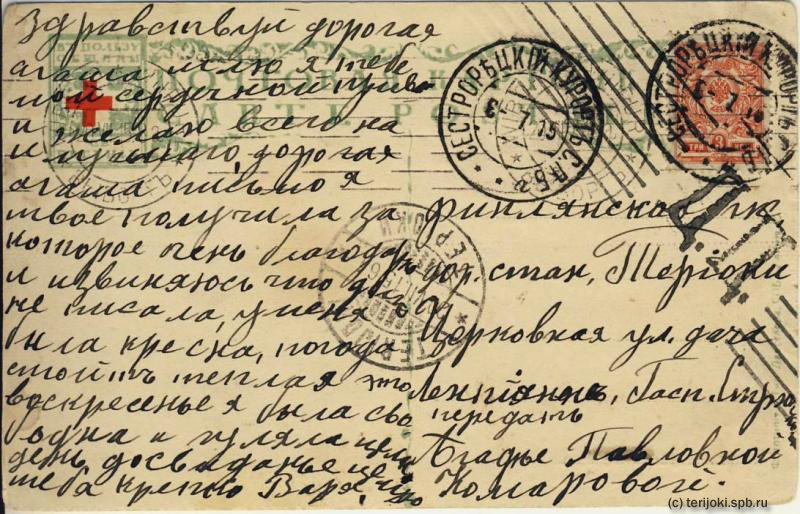 Здравствуй дорогая
агаша шлю я тебе
мой сердечной приве
и желаю всего на
илучшаго, дорогая
агаша письмо я
твое получила за
которое очень благодарю
и извиняюсь что долго
не писала, у меня
была кресна, погода
стоитъ теплая это
воскресенье я была сво
одна и гуляла целый
день досвиданье це
тебя крепко Варя
СЕСТРОРѢЦКІЙ КУРОРТЪ С.П.Б.
СЕСТРОРѢЦКІЙ КУРОРТЪ
Д. П.
финлянской
стан. Териоки
Церковная ул. дача
передать
Агафье Павловной
Комаровой.
TERIJOKI
(c) terijoki.spb.ru